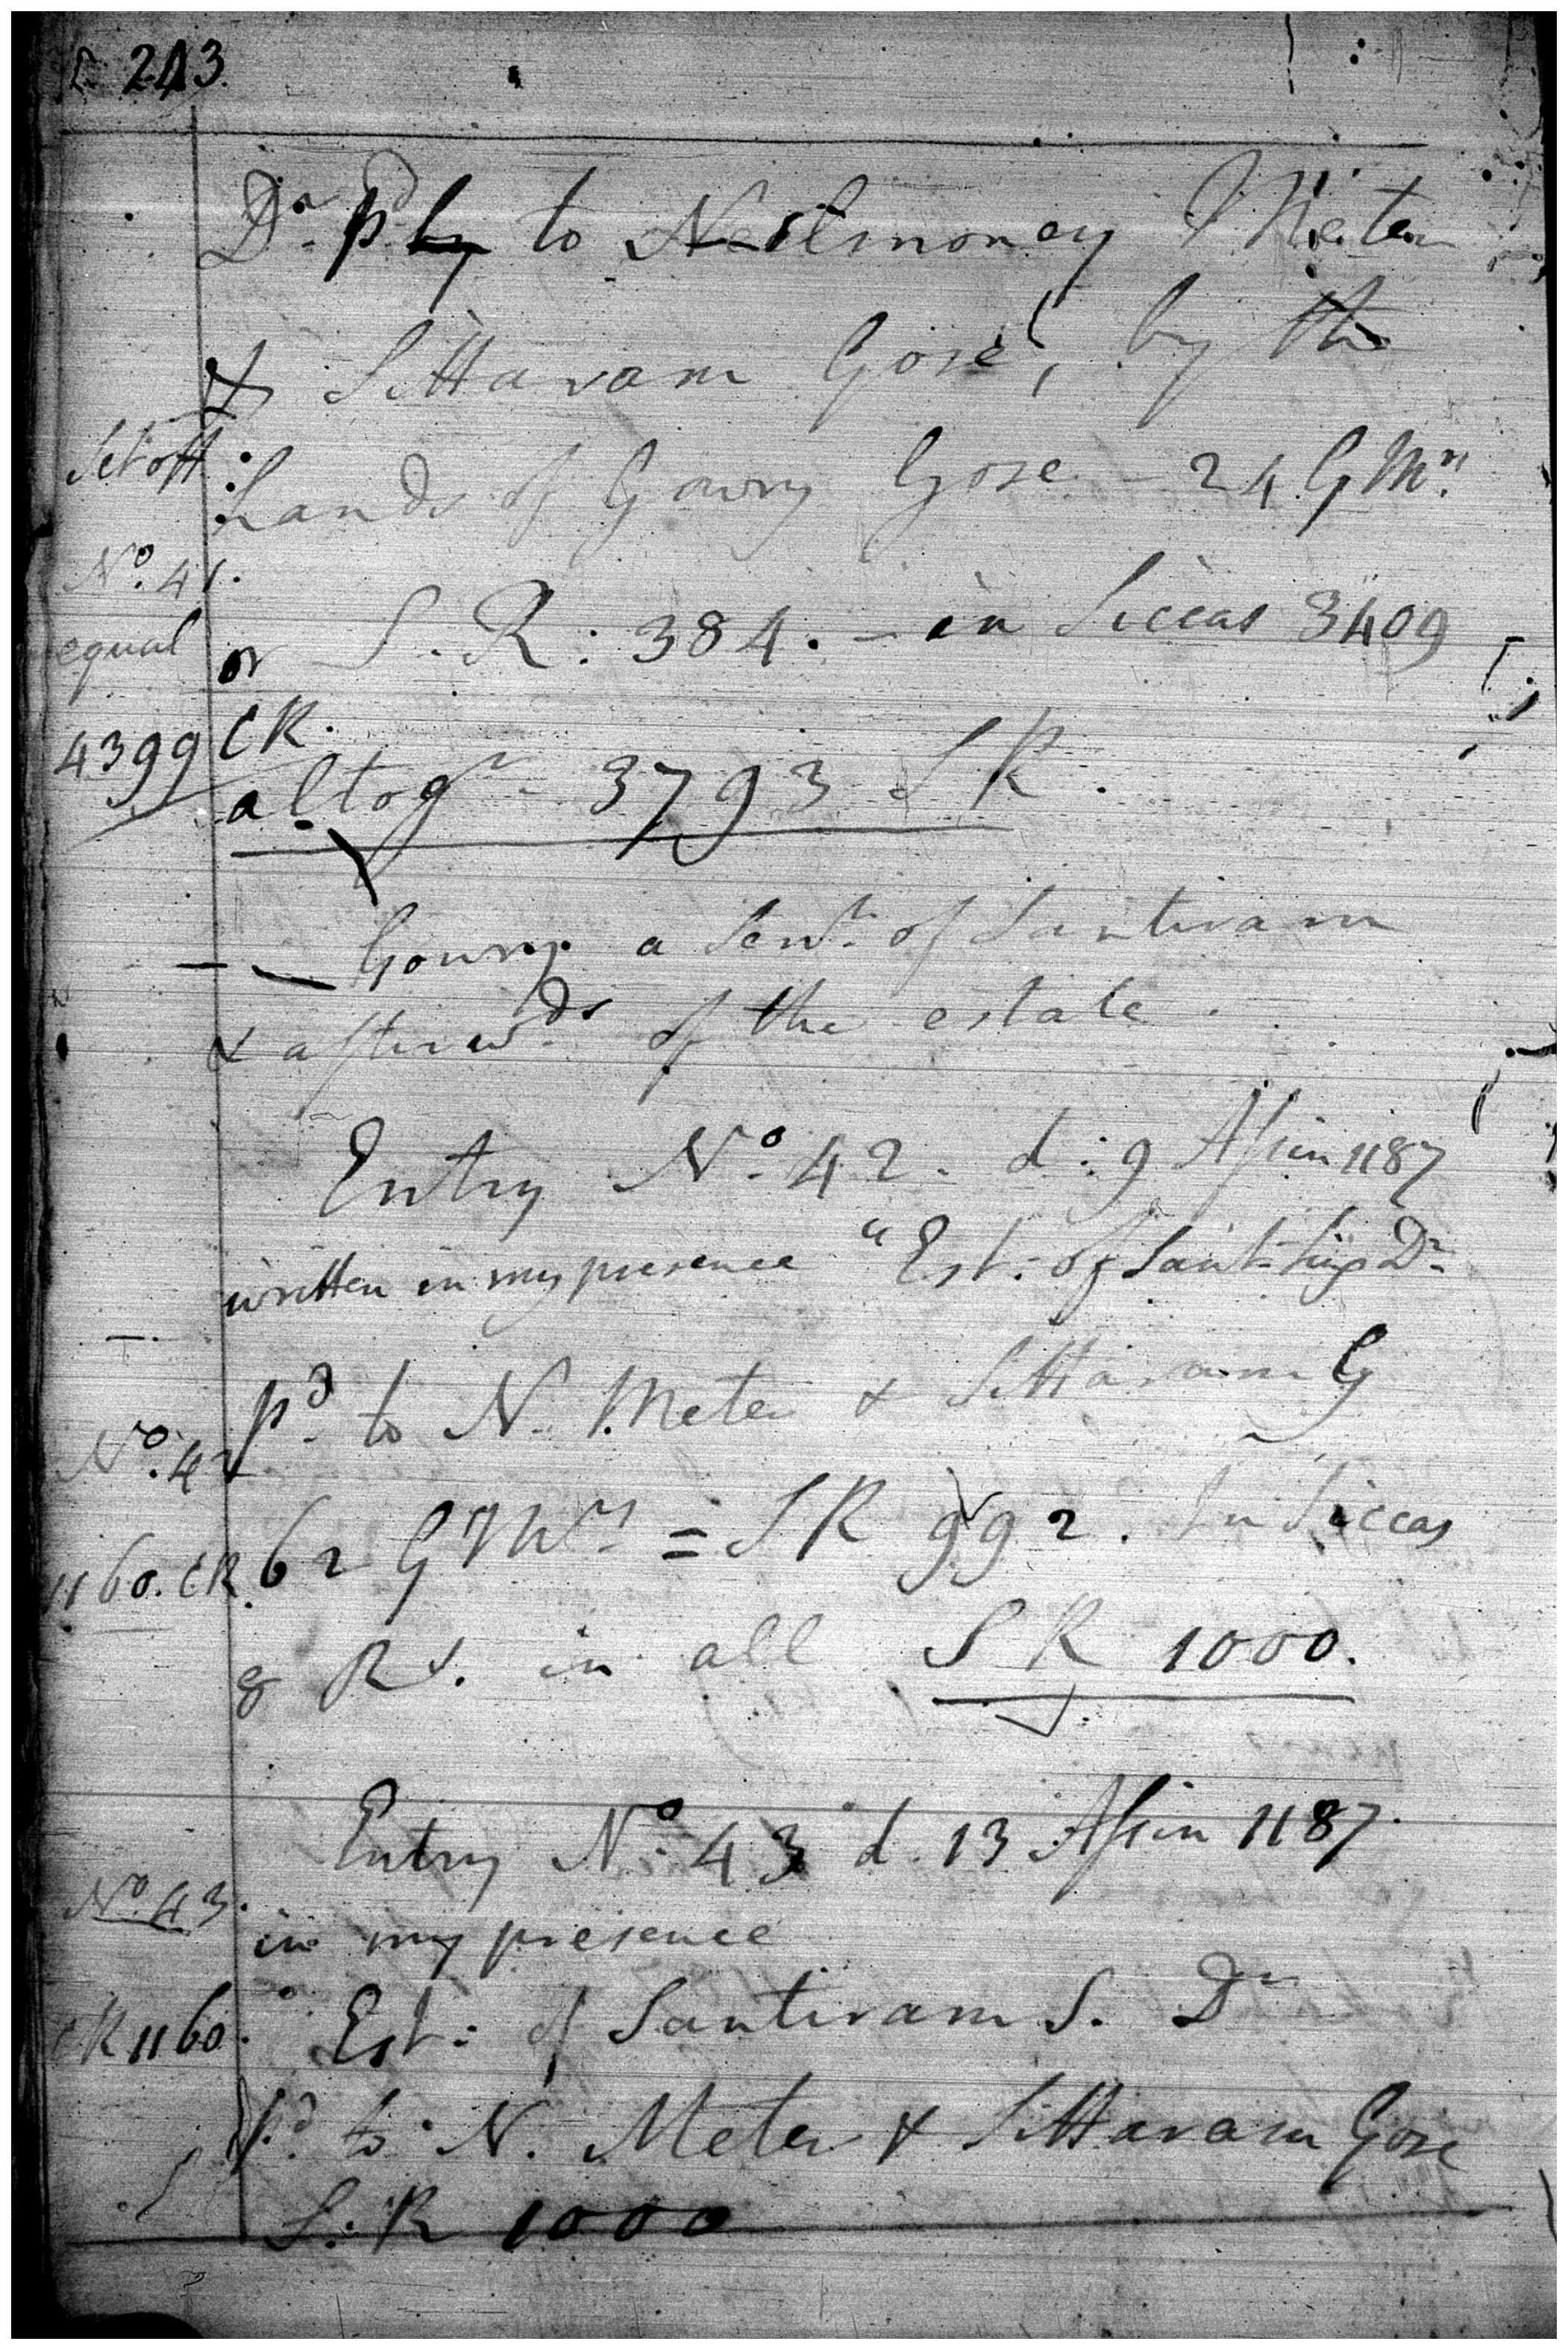 243
Dr. pd by to Neilmoney Meter
& Sittaram Gose, by the
Set off
hands of Gowry Gose - 24 G Mrs.
No. 41.
equal
or S. R: 384. - in Siccas 3409
4399 CR.
altogr. 3793 S R.
Gowry a Servt. of Santiram
& afterwds. of the estate.
Entry No. 42. d: 9 Assin 1187
written in my presence "Est: of Sant. Sing Dr.
pd. to N. Meter & Sittaram G
No. 42
62 G Mrs = S R 992. In Siccas
1160. CR.
8 Rs. in all S R 1000.
Entry No. 43 d. 13 Assin 1187.
No. 43.
in my presence
CR 1160.
Est: of Santiram S. Dr
pd. to N. Meter & Sittaram Gose
S. R 1000